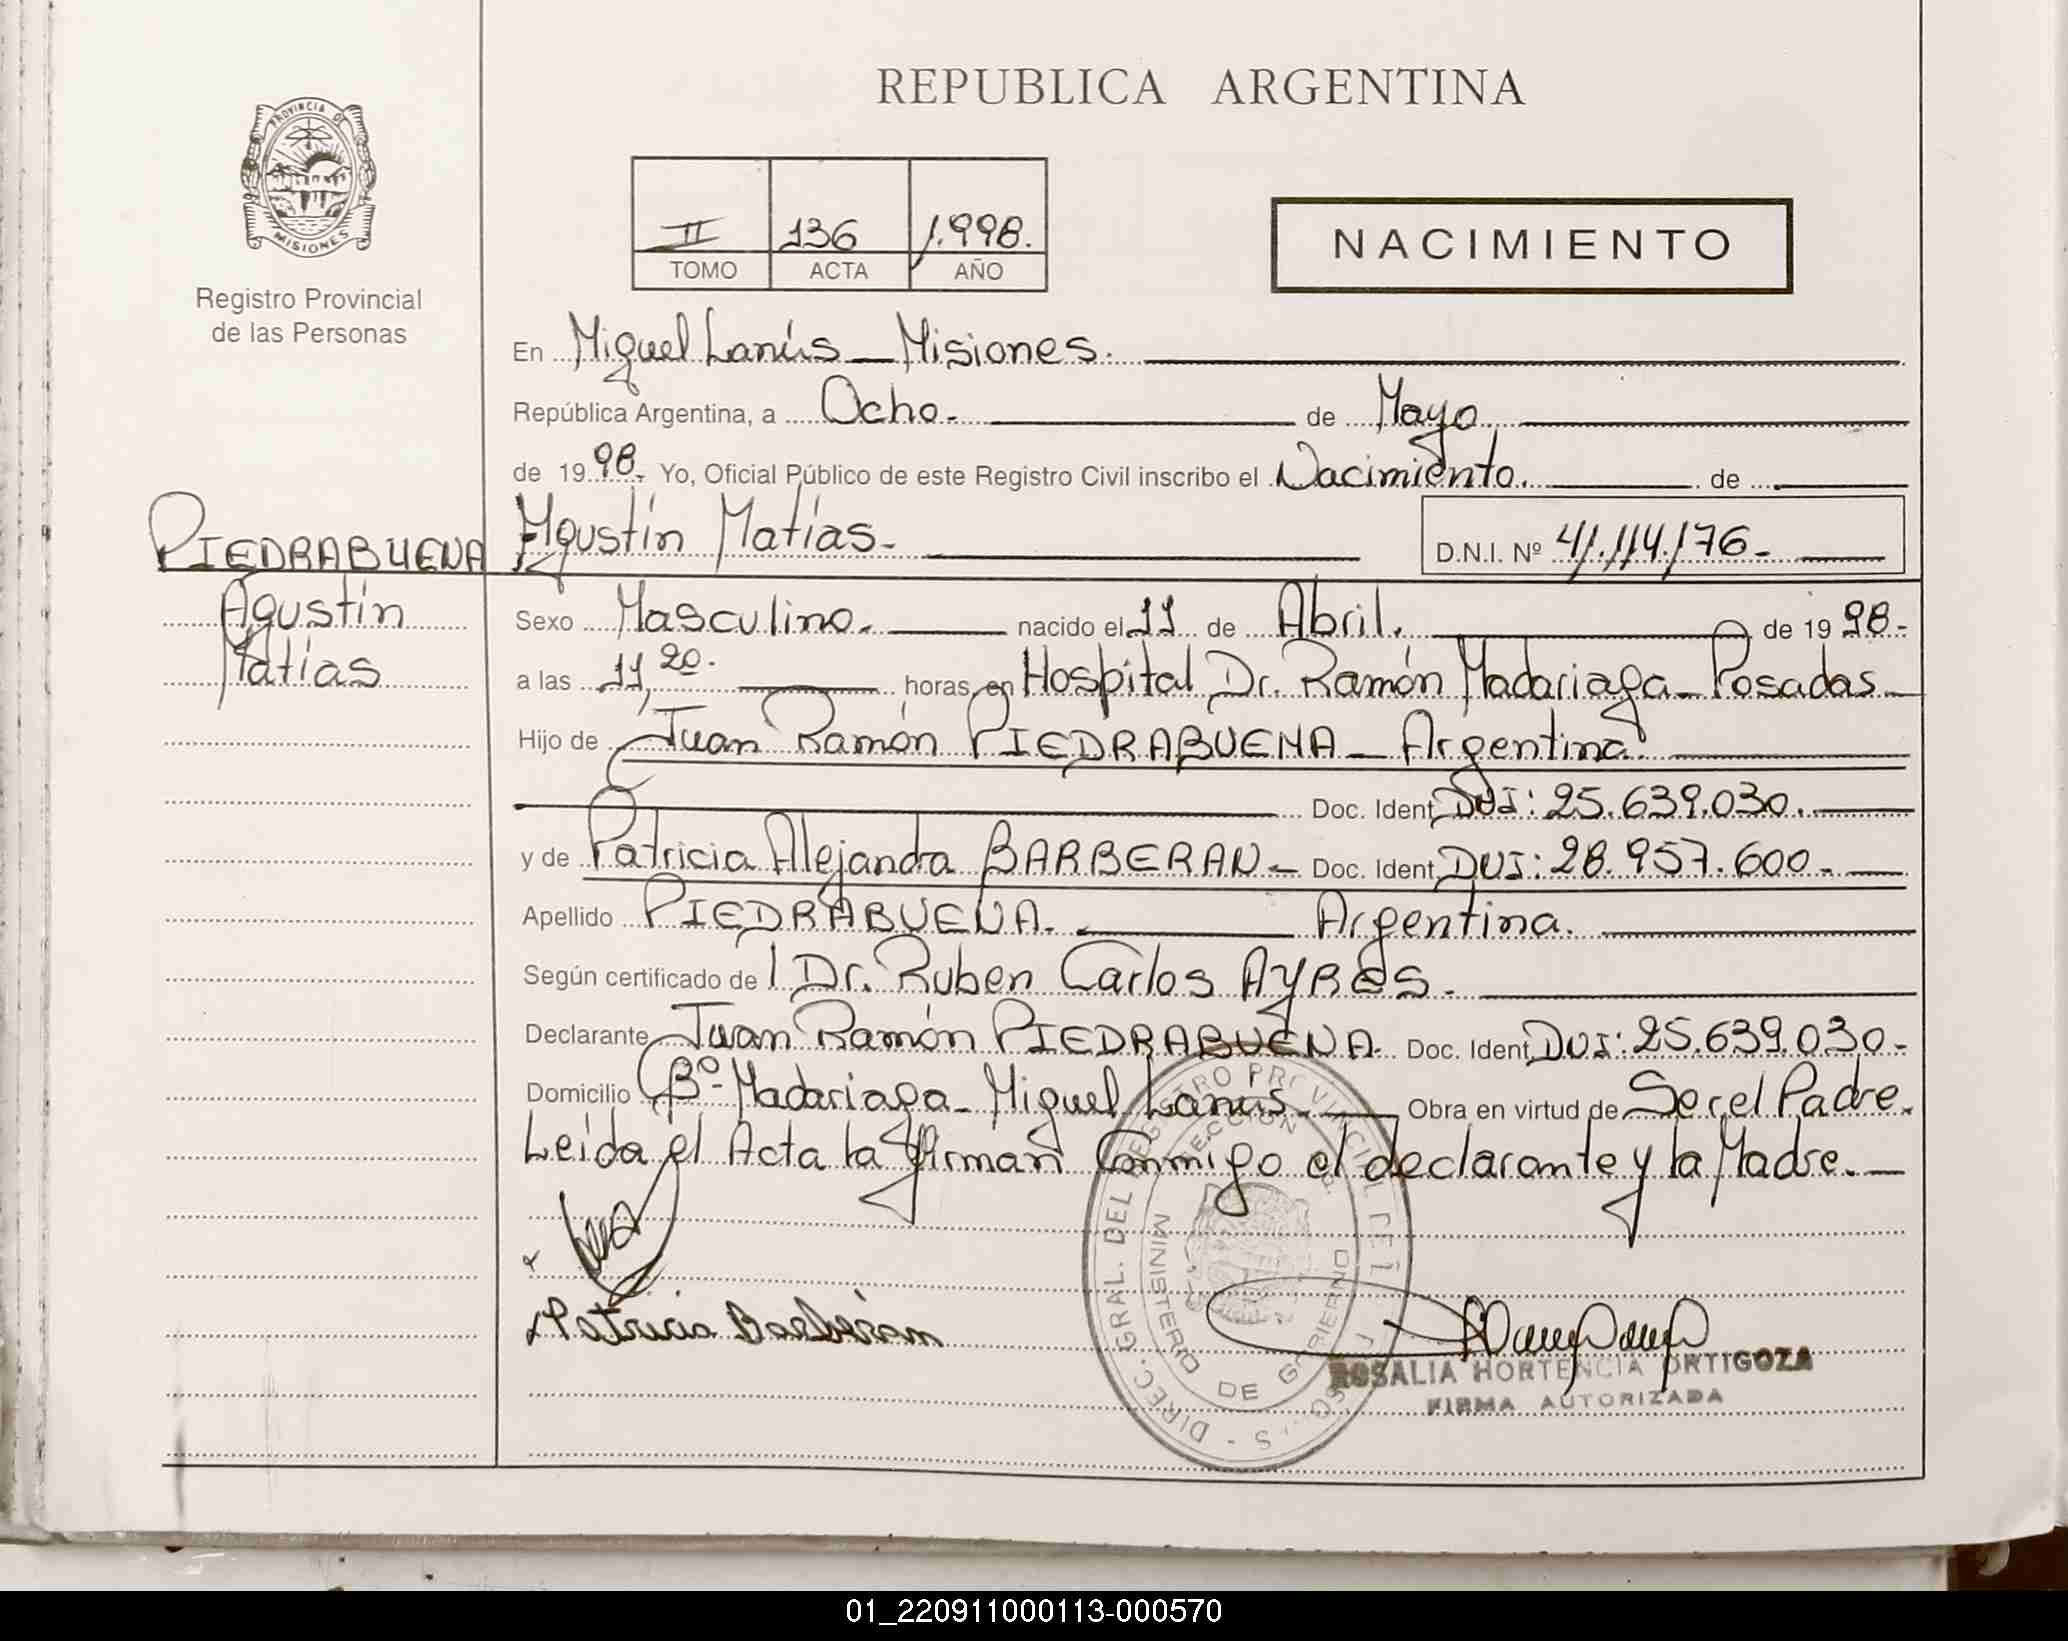 REPUBLICA ARGENTINA
PROVINCIA DE
MISIONES
Registro Provincial
de las Personas
II 136 1.998.
TOMO ACTA AÑO
NACIMIENTO
En Miguel Lanús - Misiones.
República Argentina, a Ocho.- de Mayo
de 19 98.- Yo, Oficial Público de este Registro Civil inscribo el Nacimiento. de
PIEDRABUENA Agustín Matías.- D.N.I. Nº 41.114.176.-
Agustín
Matías
Sexo Masculino. nacido el 11 de Abril. de 19 98.-
a las 11,20. horas, en Hospital Dr. Ramón Madariaga - Posadas
Hijo de Juan Ramón PIEDRABUENA - Argentina.
Doc. Ident DUI: 25.639.030.
y de Patricia Alejandra BARBERAN.- Doc. Ident DUI: 28.957.600.-
Apellido PIEDRABUENA. Argentina.
Según certificado de Dr. Ruben Carlos AYRES.-
Declarante Juan Ramón PIEDRABUENA. Doc. Ident DUI: 25.639.030.-
Domicilio Bº- Madariaga - Miguel Lanús. Obra en virtud de Ser el Padre.
Leída el Acta la firman Conmigo el declarante y la Madre.-
Patricia Barberan
DIREC. GRAL. DEL REGISTRO PROVINCIAL DE
MINISTERIO DE GOBIERNO
ROSALIA HORTENCIA ORTIGOZA
FIRMA AUTORIZADA
01_220911000113-000570